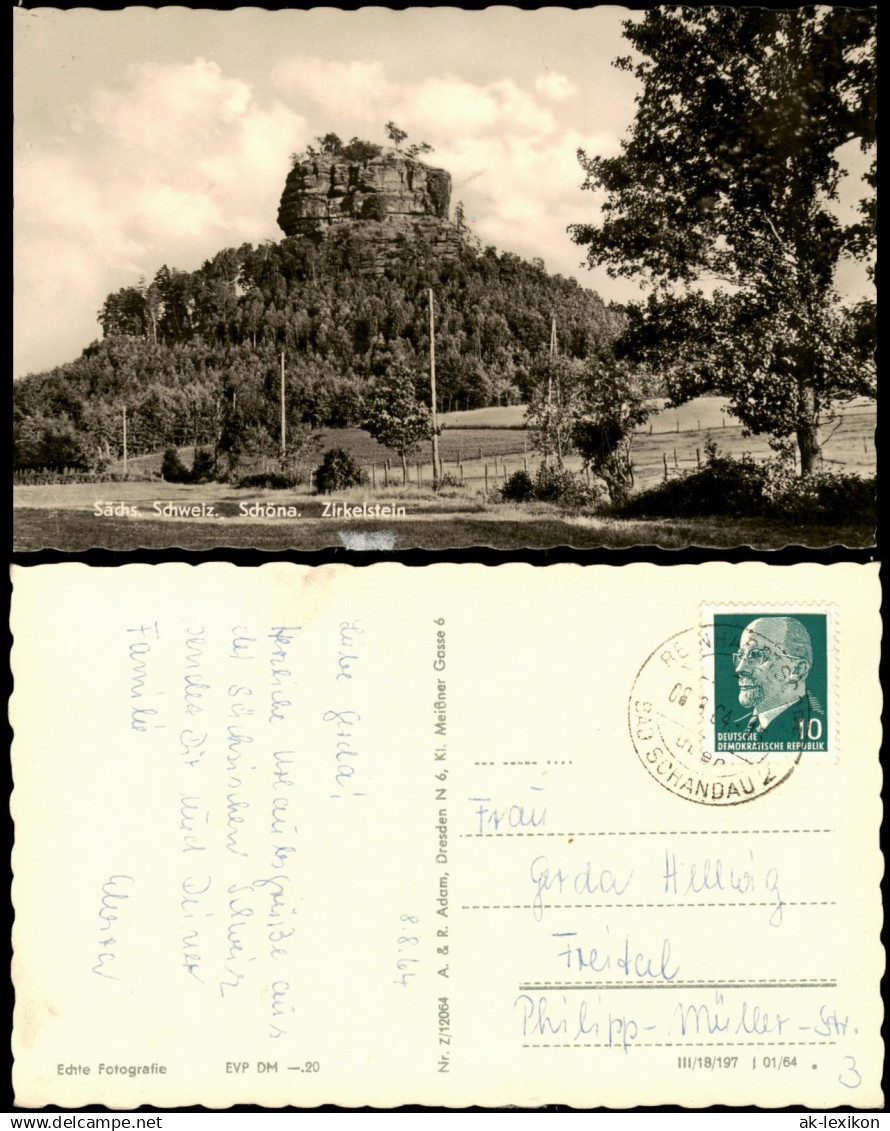 Sächs. Schweiz. Schöna. Zirkelstein
8.8.64
Liebe Gerda!
Herzliche Urlaubsgrüße aus
der Sächsischen Schweiz
sendet Dir und Deiner
Familie
Nr. Z/12064 A. & R. Adam, Dresden N 6, Kl. Meißner Gasse 6
Echte Fotografie
EVP DM —.20
BAD SCHANDAU 2
10
DEUTSCHE
DEMOKRATISCHE REPUBLIK
Frau
Gerda Hellwig
Freital
Philipp-Müller-Str.
3
III/18/197 J 01/64
ak-lexikon